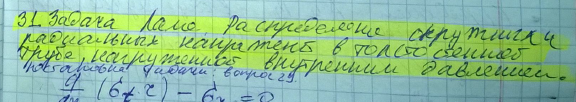 31. Задача Ламе распределение окружных и
радиальных напряжений в толстостенной
трубе, нагруженной внутренним давлением.
постановка задачи: вопрос 29
d/dr (σr r) – σt = 0